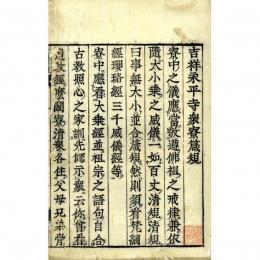 吉祥永平寺衆寮箴規
寮中之儀應當敬遵佛祖之戒律兼依
隨大小乘之威儀一如百丈清規清規
曰事無大小並合箴規然則須看梵網
經瓔珞經三千威儀經等
寮中應看大乘經並祖宗之語句自合
古教照心之家訓先師示衆云你曾看
遺教經麼闔寮清衆各住父母兄弟骨